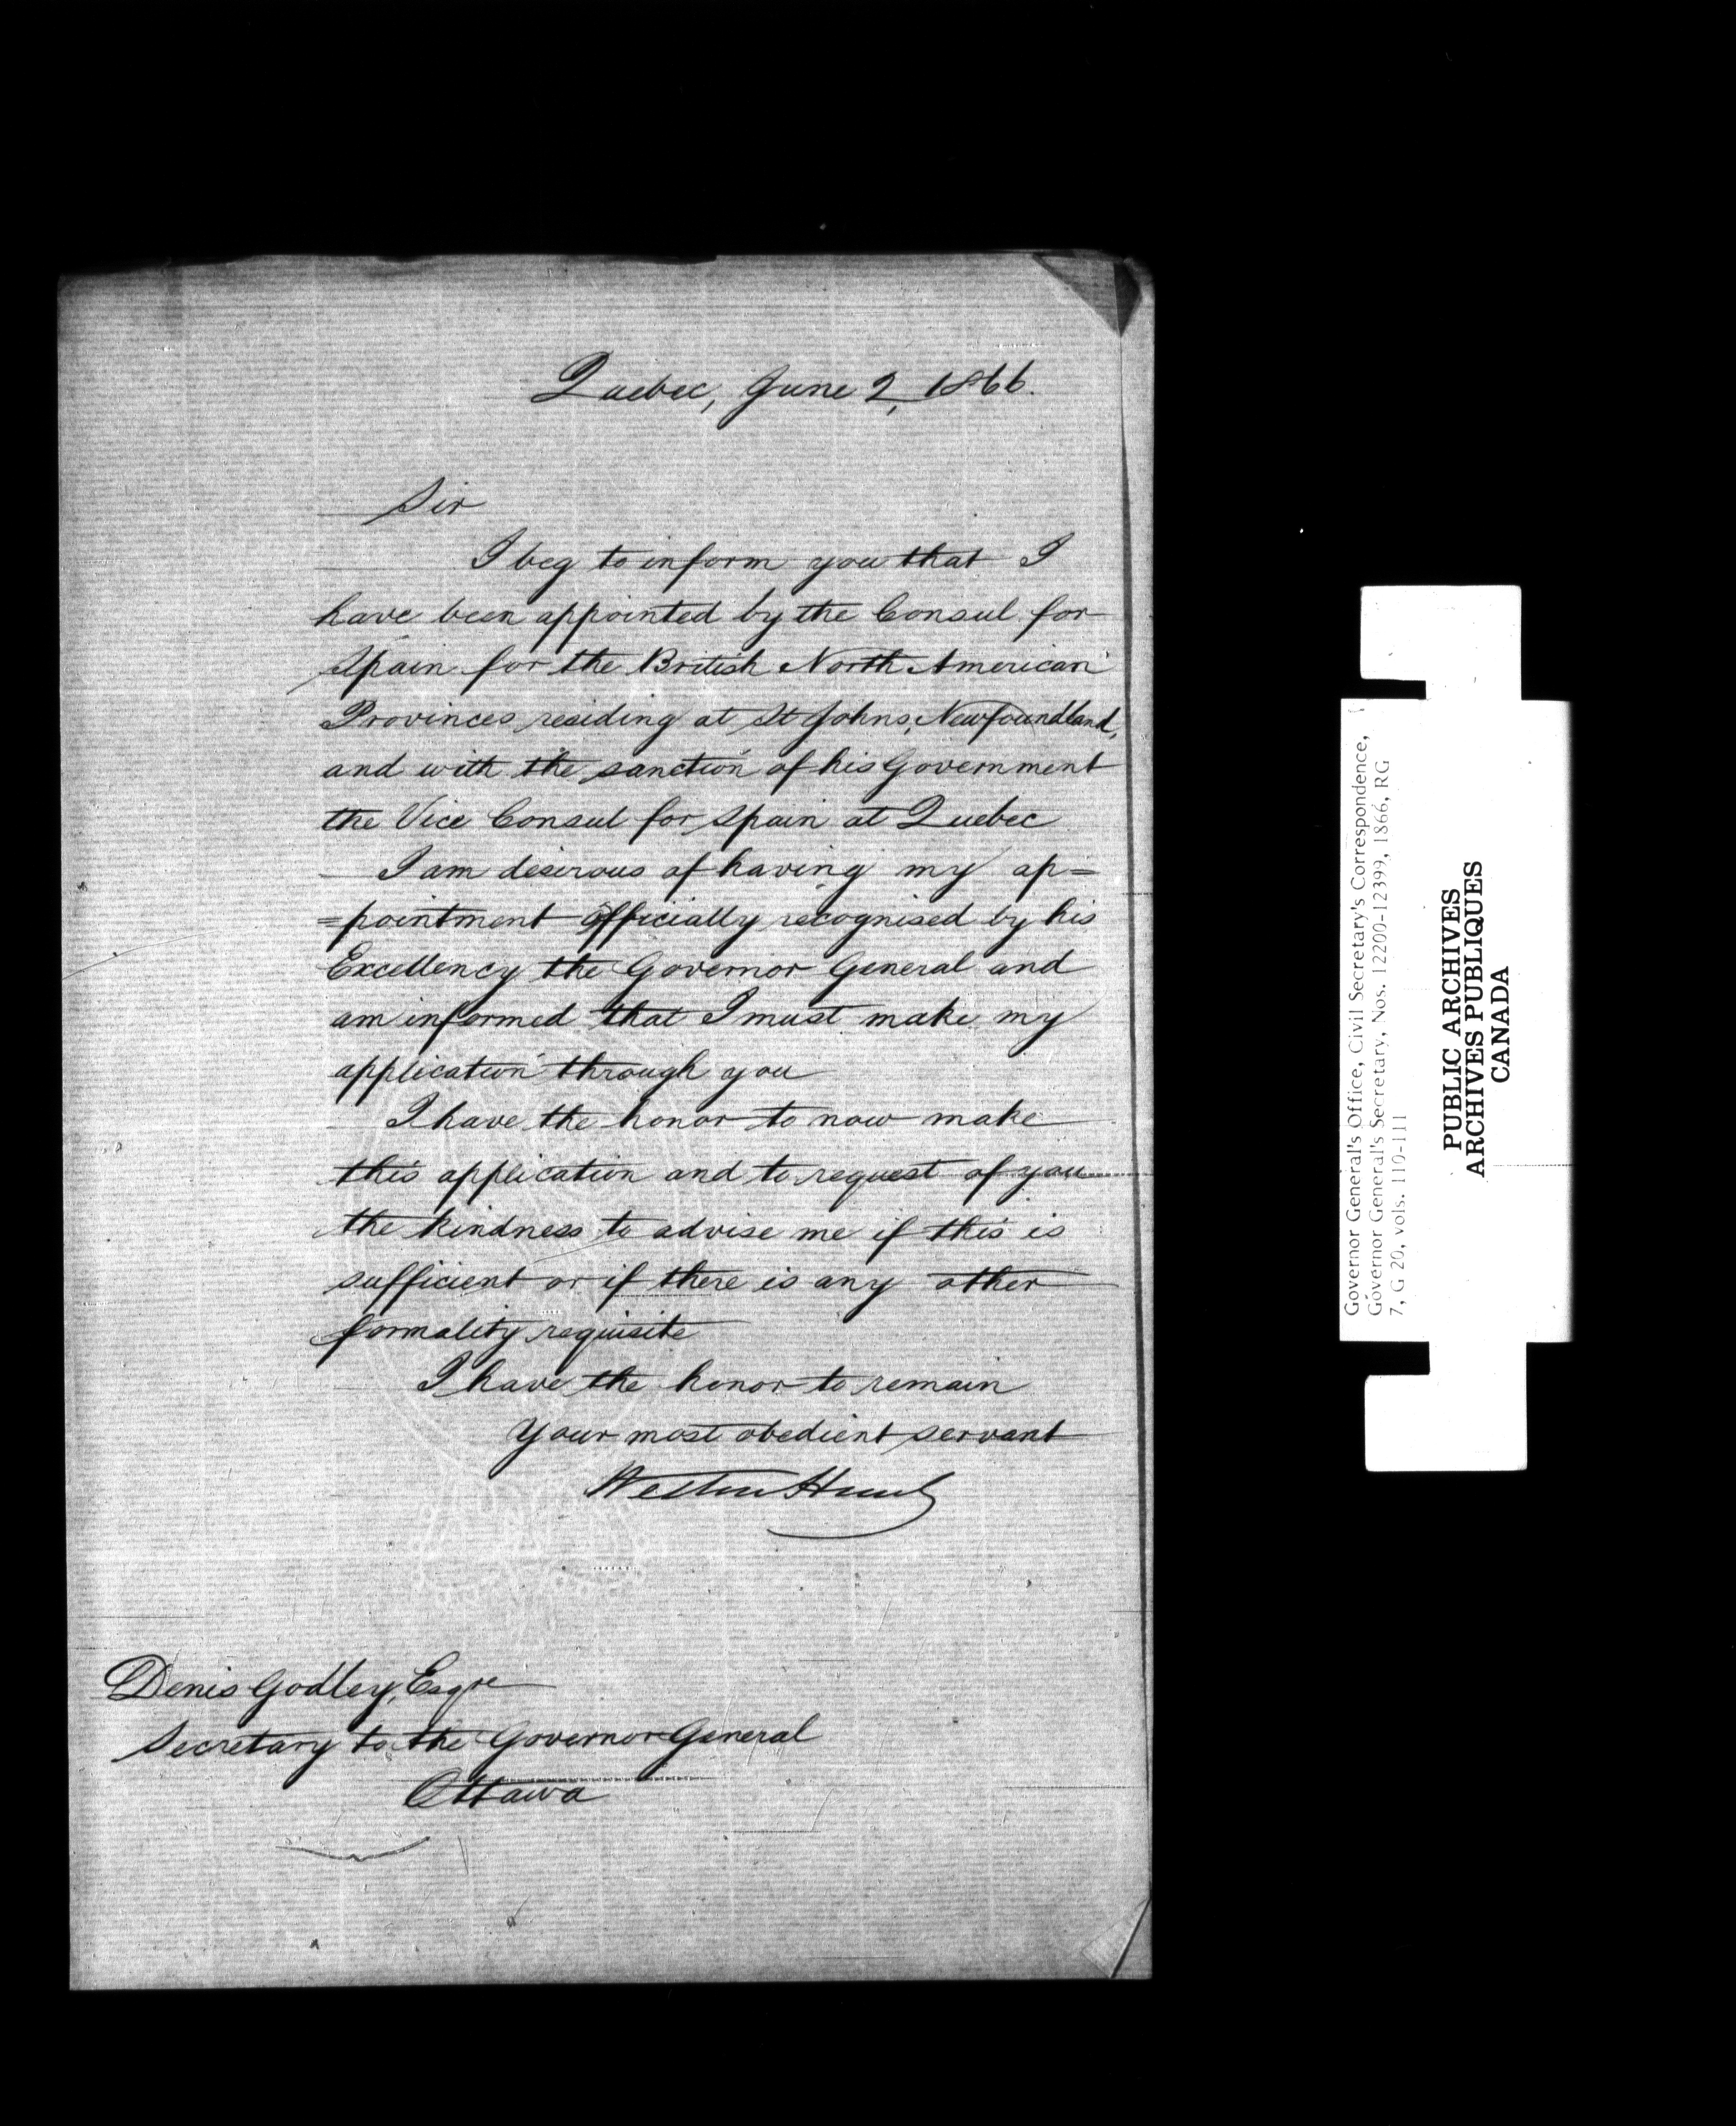 Quebec, June 2, 1866.
Sir
I beg to inform you that I
have been appointed by the Consul for
Spain for the British North American
Provinces residing at St Johns, Newfoundland,
and with the sanction of his Government
the Vice Consul for Spain at Quebec
I am desirous of having my ap=
=pointment officially recognised by his
Excellency the Governor General and
am informed that I must make my
application through you
I have the honor to now make
this application and to request of you
the kindness to advise me if this is
sufficient or if there is any other
formality requisite
I have the honor to remain
Your most obedient servant
Weston Hunt
Denis Godley, Esqre
Secretary to the Governor General
Ottawa
Governor General's Office, Civil Secretary's Correspondence,
Governor General's Secretary, Nos. 12200-12399, 1866, RG
7, G 20, vols. 110-111
PUBLIC ARCHIVES
ARCHIVES PUBLIQUES
CANADA